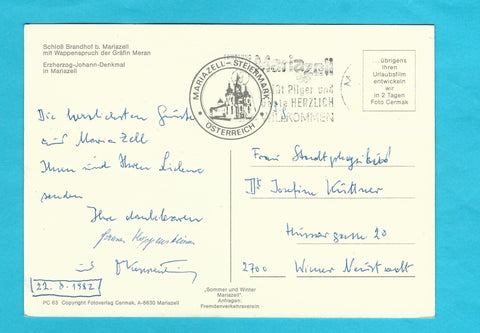 Schloß Brandhof b. Mariazell
mit Wappenspruch der Gräfin Meran
Erzherzog-Johann-Denkmal
in Mariazell
Mariazell
Pilger und
HERZLICH
MARIAZELL - STEIERMARK
ÖSTERREICH
...übrigens
Ihren
Urlaubsfilm
entwickeln
wir
in 2 Tagen
Foto Cermak
Die herzlichsten Grüße
aus Maria Zell
Ihnen und Ihren Lieben
senden
Ihre dankbaren
und
22. 8. 1982
Frau Stadtphysikus
Dr Josefine Küttner
Hussargasse 20
2700 Wiener Neustadt
PC 63 Copyright Fotoverlag Cermak, A-8630 Mariazell
„Sommer und Winter
Mariazell"
Anfragen:
Fremdenverkehrsverein